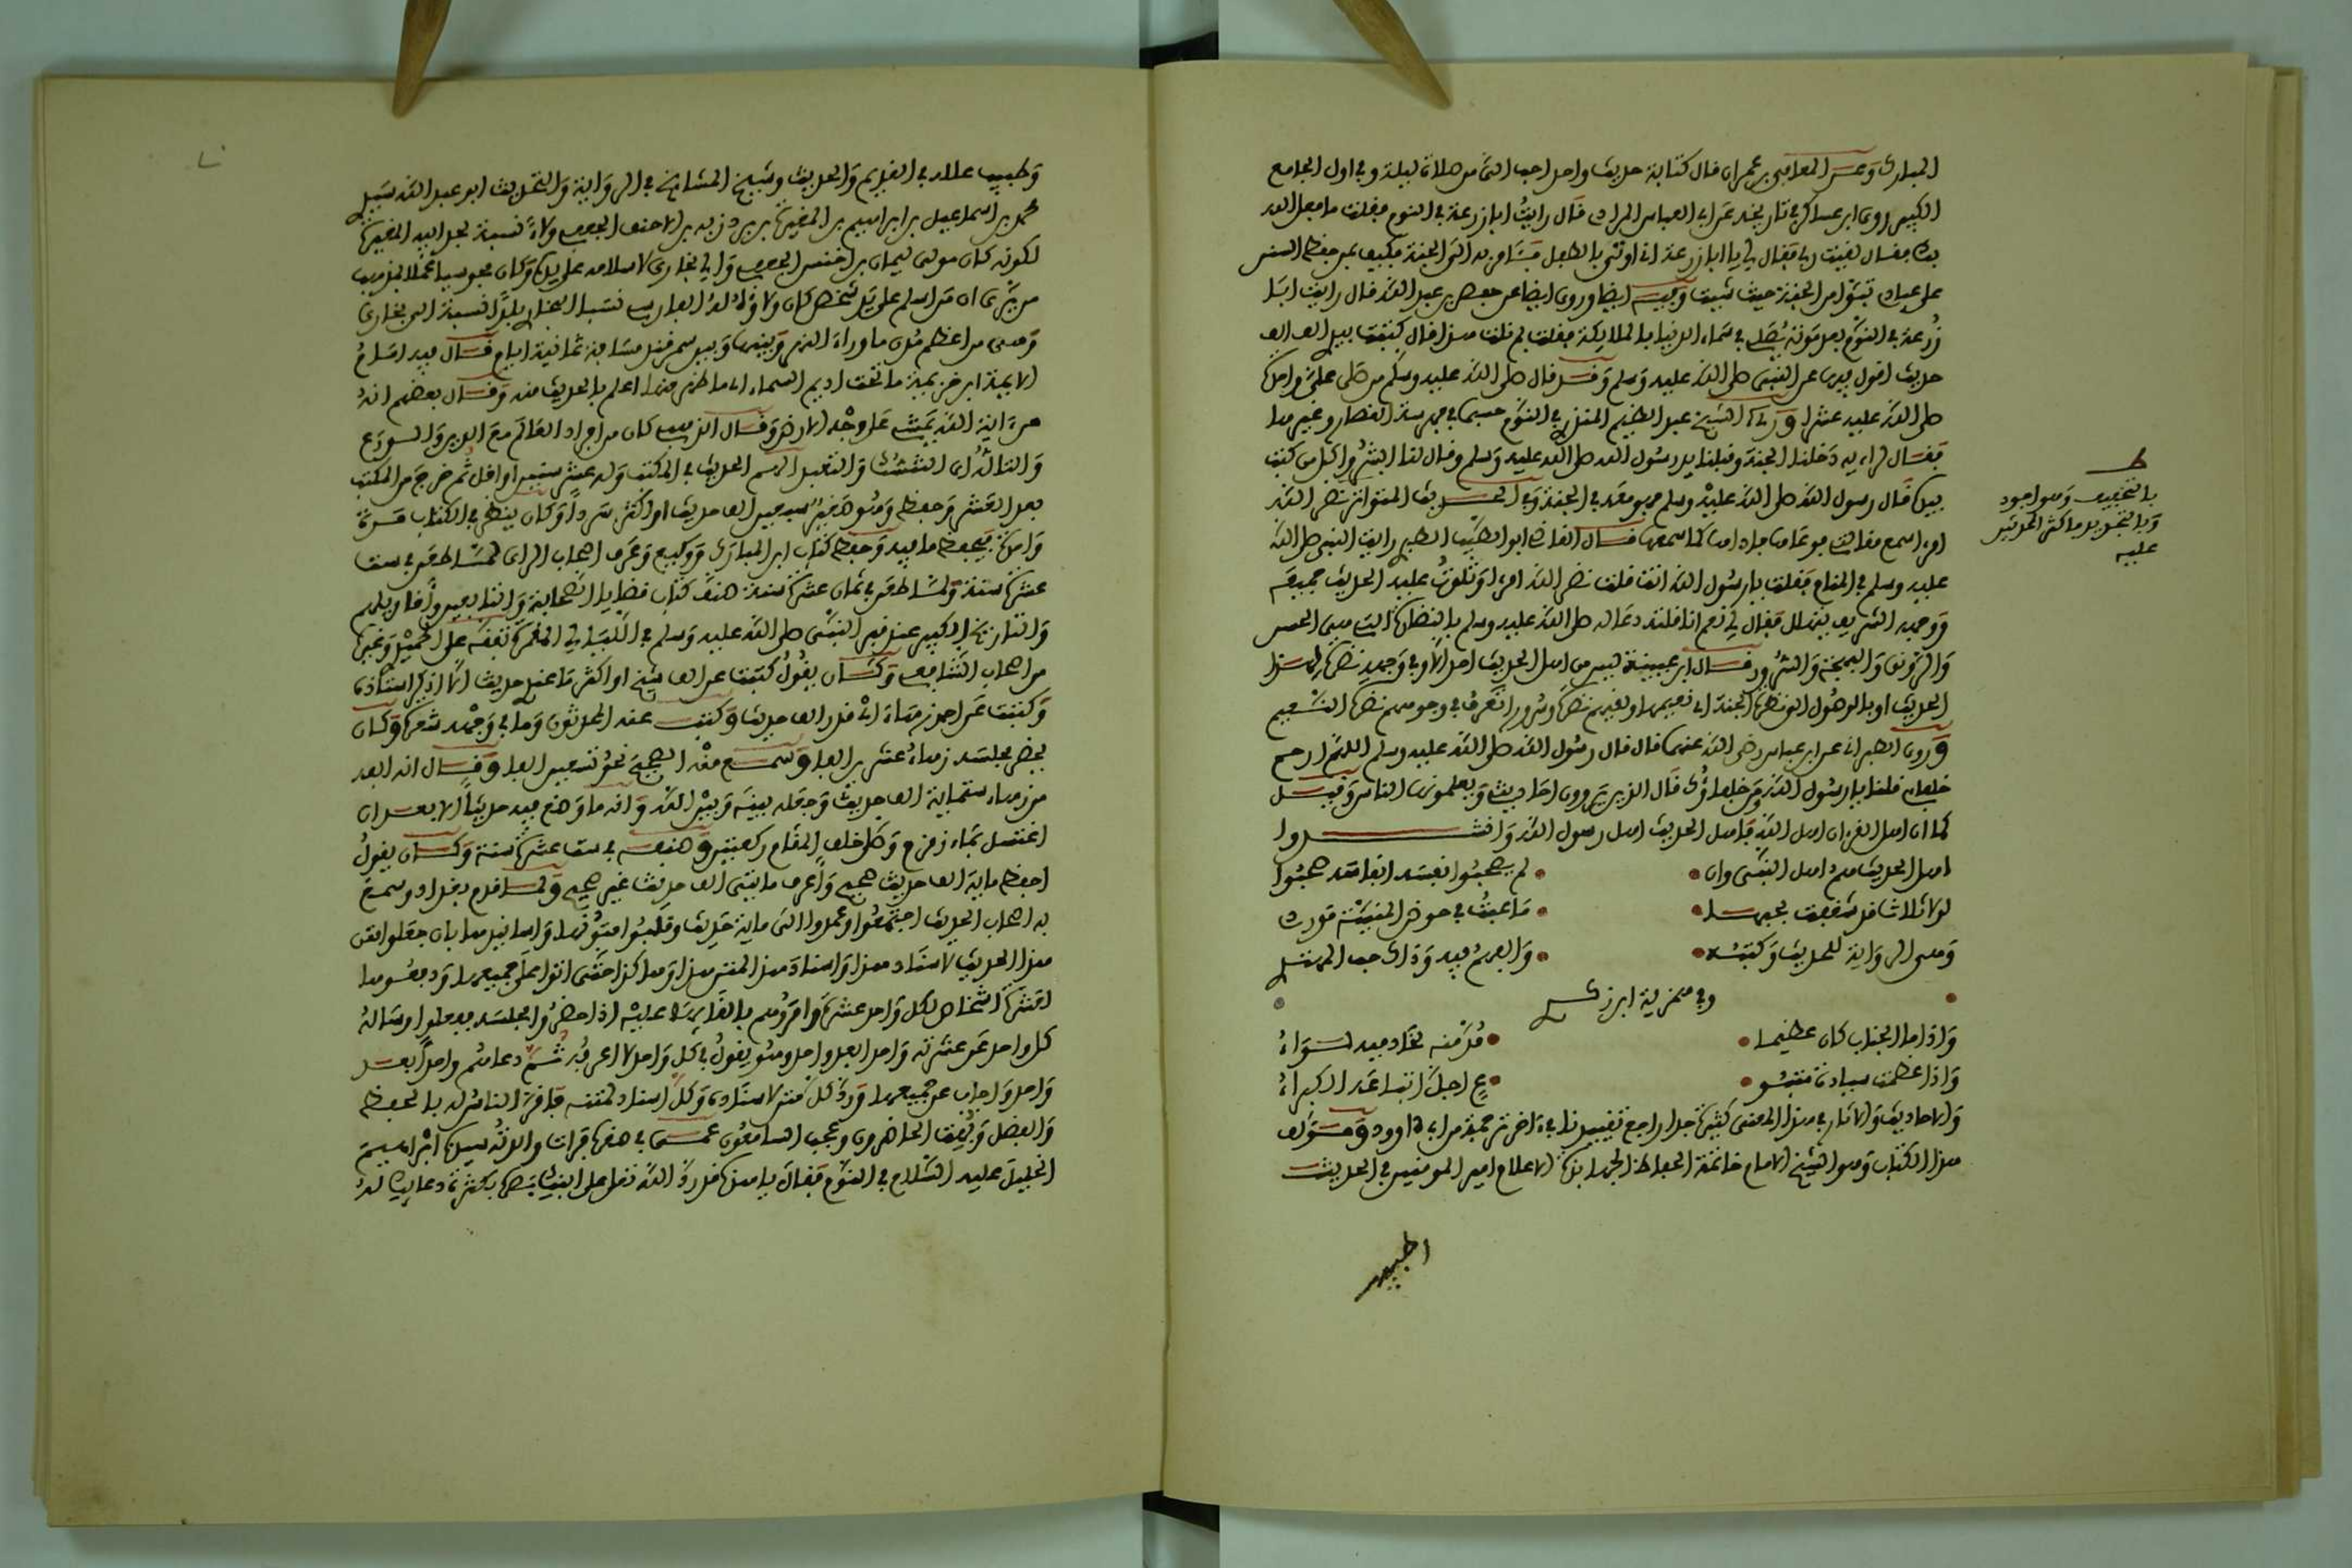 المبارك وعن المعافى بن عمران قال كتابة حديث واحد احب الي من صلاة ليلة وفي اول الجامع
الكبير روى ابن عساكر في تاريخه عن ابي العباس المرادي قال رايت ابا زرعة في النوم فقلت ما فعل الله
بك فقال لقيت ربي فقال لي يا ابا زرعة اني اوتى بالطفل فئامر به الى الجنة فكيف بمن حفظ السنن
على عبادي تبوأ من الجنة حيث شئت وفيه ايضا وروى ايضا عن حفص بن عبد الله قال رايت ابا
زرعة في النوم بعد موته يصلي في سماء الدنيا بالملائكة فقلت بم نلت هذا قال كتبت بيدي الف الف
حديث اقول فيها عن النبي صلى الله عليه وسلم وقد قال صلى الله عليه وسلم من صلى علي واحدة
صلى الله عليه عشرا الشيخ عبد العظيم المنذري في النوم
فقال لرائيه دخلنا الجنة وقبلنا يد رسول الله صلى الله عليه وسلم وقال لنا ابشروا كل من كتب
بيده قال رسول الله صلى الله عليه وسلم فهو معه في الجنة وفي الحديث المتواتر نضر الله
امرءا سمع مقالتي فوعاها فاداها كما سمعها قال القاضي ابو الطيب الطبري رايت النبي صلى الله
عليه وسلم في المنام فقلت يا رسول الله انت قلت نضر الله امرءا وتلوت عليه الحديث جميعه
ووجهه الشريف يتهلل فقال لي نعم انا قلته دعا له صلى الله عليه وسلم بالنضارة التي هي الحسن
والرونق والبهجة والسرور قال ابن عيينة ليس من اهل الحديث احد الا وفي وجهه نضرة لهذا
الحديث او بالوصول الى نضرة الجنة اي نعيمها ولقيهم نضرة وسرورا تعرف في وجوههم نضرة النعيم
وروى الطبراني عن ابن عباس رضي الله عنهما قال قال رسول الله صلى الله عليه وسلم اللهم ارحم
خلفائي قلنا يا رسول الله ومن خلفاؤك قال الذين يروون احاديثي ويعلمونها الناس وقيل
كما ان اهل القرءان اهل الله فاهل الحديث اهل رسول الله وانشدوا
اهل الحديث هم اهل النبي وان • لم يصحبوا نفسه انفاسه صحبوا
وفي همزية ابن زكري
واذا ما الجناب كان عظيما • مد منه لخادميه لواء
واذا عظمت سيادة متبو • ع اجل اتباعه الكبراء
والاحاديث والاثار في هذا المعنى كثيرة جدا راجع تقييدنا في ءاخر ترجمة من ابي داوود ومؤلف
هذا الكتاب وهو الشيخ الامام خاتمة الحفاظ الجهابذة الاعلام امير المومنين في الحديث
بالتخفيف وهو اجود
وبالتشديد وما اكثر المحدثين
عليه
وطبيب علله في القديم والحديث وشيخ المشايخ في الرواية والتحديث ابو عبد الله سيدي
محمد بن اسماعيل بن ابراهيم بن المغيرة بن بردزبه بن الاحنف الجعفي ولاء نسبة لجد ابيه المغيرة
لكونه كان مولى ليمان بن اخنس الجعفي والي بخارى لاسلامه على يديه وكان مجوسيا عملا بمذهب
من يرى ان من اسلم على يد شخص كان ولاؤه له البخاري نسبة الى بخارى
وهي من اعظم مدن ما وراء النهر وبينها وبين سمرقند مسافة ثمانية ايام قال فيه امام
الايمة ابن خزيمة ما تحت اديم السماء اعلم بالحديث منه وقال بعضهم انه
هو ءاية الله يمشي على وجه الارض وقال الذهبي كان من افراد العالم مع الدين والورع
والهم الحديث في المكتب وله عشر سنين او اقل ثم خرج من المكتب
بعد العشر وحفظ وهو صبي سبعين الف حديث او اكثر سردا وكان ينظر في الكتاب مرة
واحدة فيحفظ ما فيه وحفظ كتب ابن المبارك ووكيع وعرف اصحاب الراي لما طعن في ست
عشرة سنة ولما طعن في ثمان عشرة سنة صنف كتاب قضايا الصحابة والتابعين واقاويلهم
والتاريخ الكبير عند قبر النبي صلى الله عليه وسلم في الليالي المقمرة تفقه على الحميدي وغيره
من اصحاب الشافعي وكان يقول كتبت عن الف شيخ او اكثر ما عندي حديث الا اذكر اسناده
وكتبت عن احمد زهاء الف حديث وكتب عنه المحدثون وما في وجهه شعرة وكان
يحضر مجلسه زهاء عشرين الفا وسمع منه الصحيح نحو تسعين الفا وقال انه الفه
من زهاء ستمائة الف حديث وجعله بينه وبين الله وانه ما وضع فيه حديثا الا بعد ان
اغتسل بماء زمزم وصلى خلف المقام ركعتين وصنفه في ست عشرة سنة وكان يقول
احفظ ماية الف حديث صحيح واعرف مايتي الف حديث غير صحيح ولما قدم بغداد وسمع
به اصحاب الحديث اجتمعوا وعمدوا الى ماية حديث وقلبوا متونها واسانيدها بان جعلوا متن
هذا الحديث لاسناد هذا واسناد هذا لمتن هذا وهكذا حتى اتوا على جميعها ودفعوها
لعشرة اشخاص لكل واحد عشرة وامروهم بالقائها عليه اذا حضروا مجلسه ففعلوا وساله
كل واحد عن عشرته واحدا بعد واحد وهو يقول في كل واحد لا اعرفه ثم دعاهم واحدا بعد
واحد واجاب عن جميعها ورد كل متن لاسناده وكل اسناد لمتنه فاقر الناس له بالحفظ
والفضل وبهت الحاضرون وعجب السامعون عمي في صغره فرات والدته سيدنا ابراهيم
الخليل عليه السلام في النوم فقال يا هذه قد رد الله تعالى على ابنك بصره بكثرة دعائك له